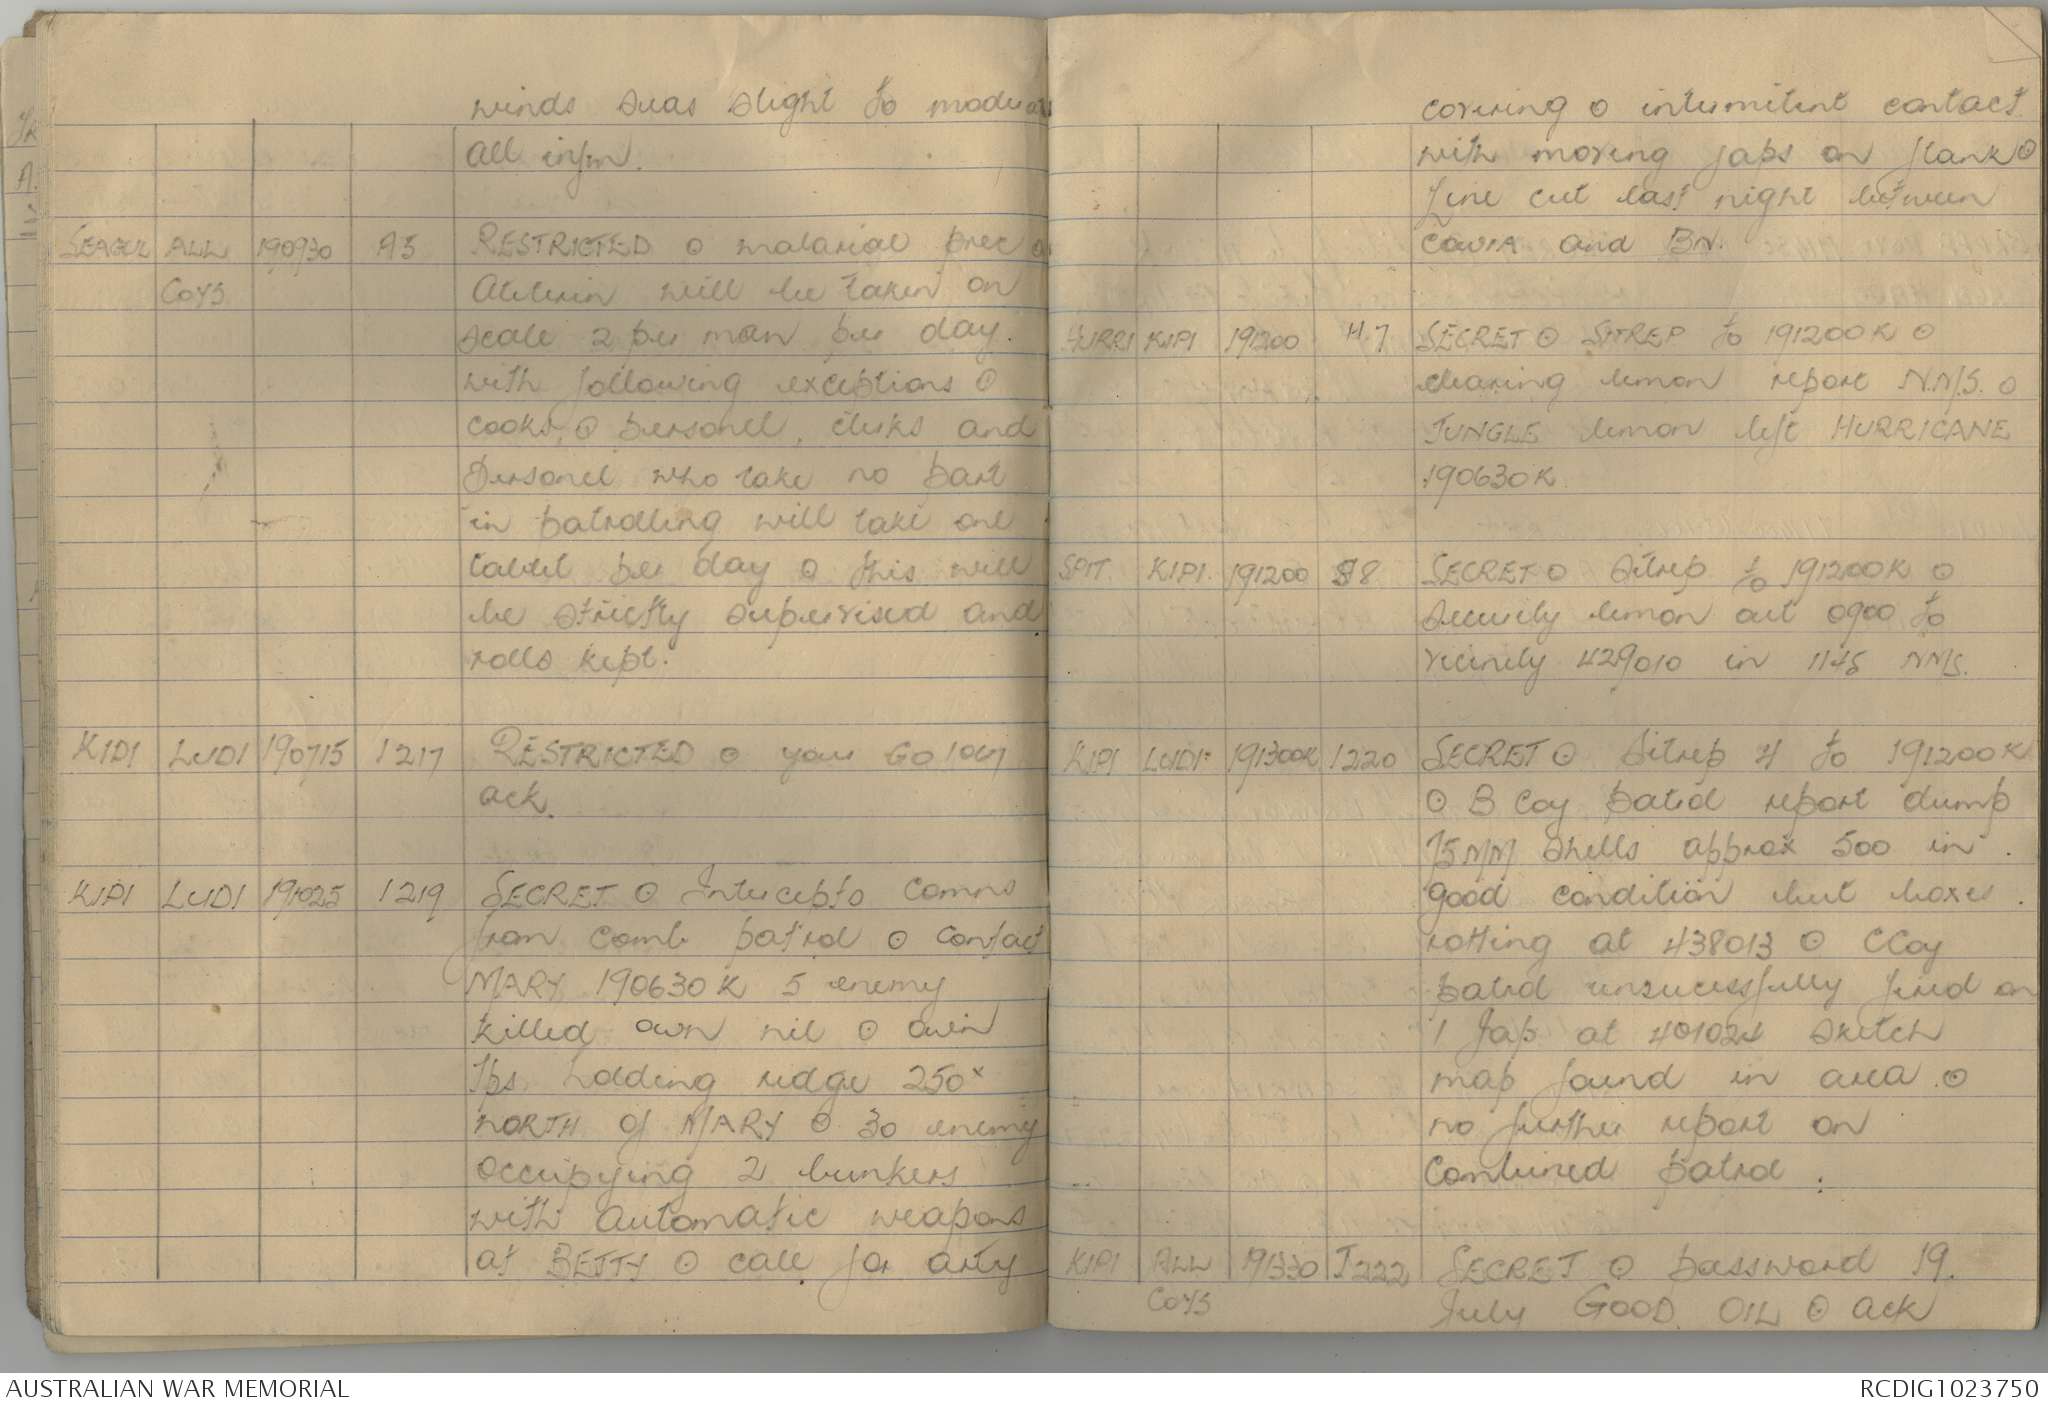 winds seas slight to moderate
all infm.
SEAGUL ALL 190930 A5 RESTRICTED ⊙ malarial prec ⊙
COYS Aterin will be taken on
scale 2 per man per day.
with following exceptions ⊙
cooks, ⊙ personel, clerks and
personel who take no part
in patrolling will take one
tablet per day ⊙ this will
be strictly supervised and
rolls kept.
KIPI LUDI 190715 1217 RESTRICTED ⊙ your GO
ack.
KIPI LUDI 191025 1219 SECRET ⊙ Intercepts Comns
from Comb patrol ⊙ contact
MARY 190630K 5 enemy
killed own nil ⊙ own
tps holding ridge 250x
NORTH of MARY ⊙ 30 enemy
occupying 2 bunkers
with automatic weapons
at BETTY ⊙ call for arty
covering ⊙ intermitent contact
with moving Japs on flank ⊙
Line cut last night between
and BN.
HURRI KIPI 191200 H.7 SECRET ⊙ SITREP to 191200K ⊙
clearing lemon report N.M.S. ⊙
JUNGLE lemon left HURRICANE
190630K
SPIT. KIPI. 191200 S8 SECRET ⊙ Sitrep to 191200K ⊙
Security lemon out 0900 to
vicinity 429010 in 1145 NMS.
KIPI LUDI 191300K 1220 SECRET ⊙ Sitrep 4 to 191200K
⊙ B Coy patrol report dump
75MM shells approx 500 in
good condition but boxes
rotting at 438013 ⊙ C Coy
patrol unsucessfully fired on
1 Jap at 401024 sketch
map found in area ⊙
no further report on
Combined patrol.
KIPI ALL 191330 J222 SECRET ⊙ password 19.
COYS July GOOD OIL ⊙ ack
AUSTRALIAN WAR MEMORIAL
RCDIG1023750